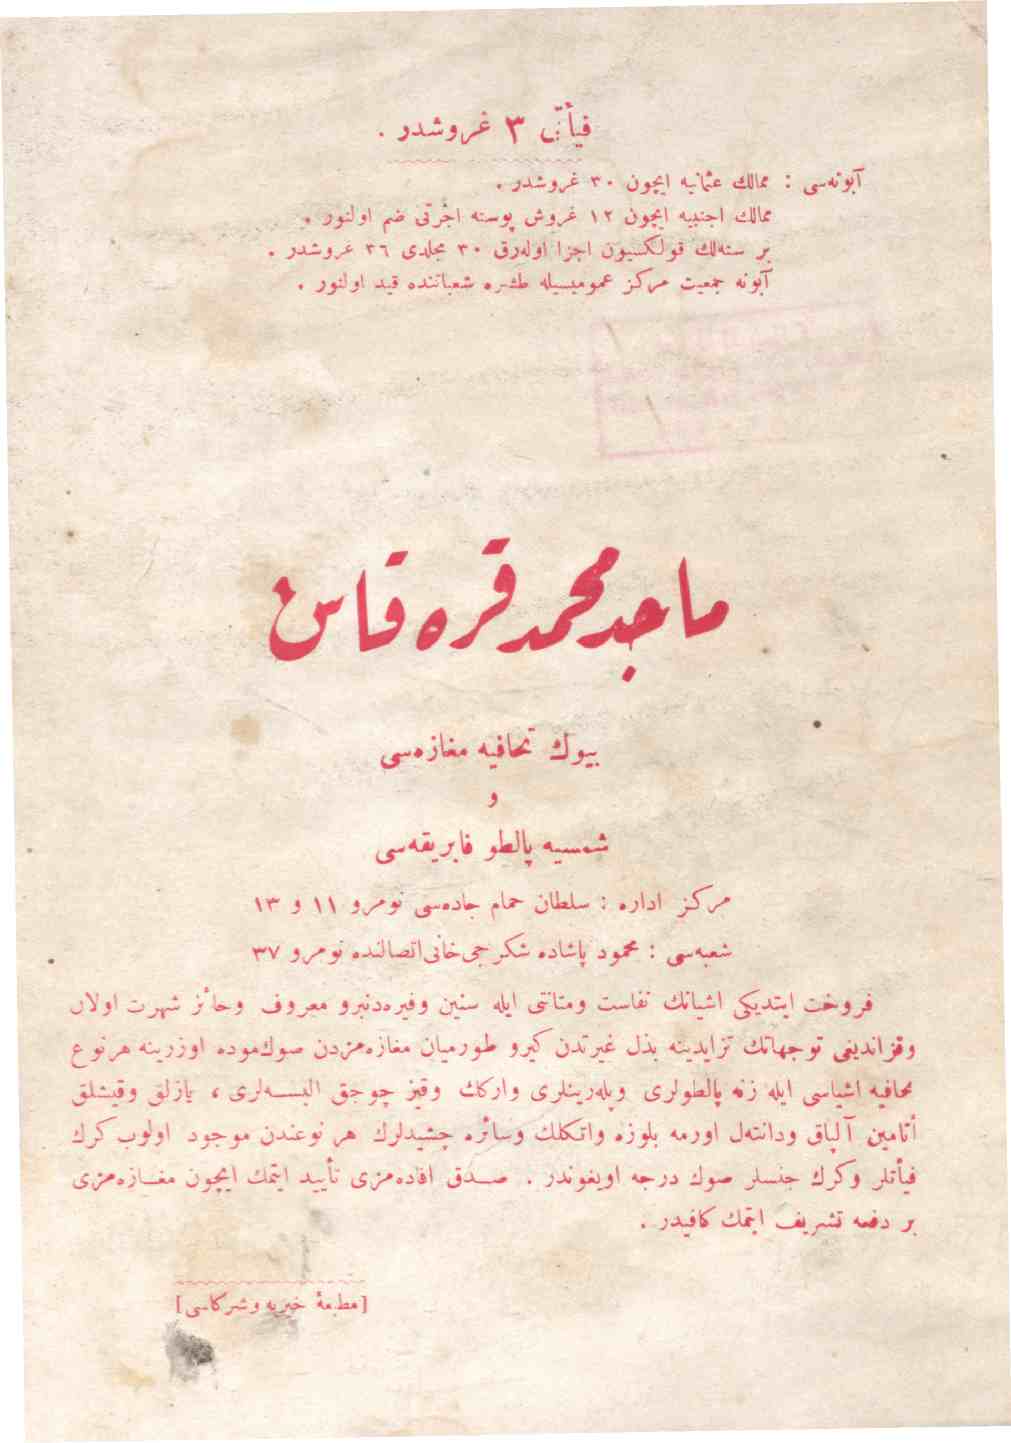 فیأتی ٣ غروشدر .
آبونه‌سی : ممالك عثمانیه ایچون ٣٠ غروشدر .
ممالك اجنبیه ایچون ١٢ غروش پوسته اجرتی ضم اولنور .
بر سنه‌لك قولكسیون اجزا اوله‌رق ٣٠ مجلدی ٣٦ غروشدر .
آبونه جمعیت مركز عمومیسیله طشره شعباتنده قید اولنور .
ماجد محمد قره قاش
بیوك تحافیه مغازه‌سی
و
شمسیه پالطو فابریقه‌سی
مركز اداره : سلطان حمام جاده‌سی نومرو ١١ و ١٣
شعبه‌سی : محمود پاشاده شكرجی خانی اتصالنده نومرو ٣٧
فروخت ایتدیكی اشیانك نفاست ومتانتی ایله سنین وفیره‌دنبرو معروف وحائز شهرت اولان
وقزاندیغی توجهاتك تزایدینه بذل غیرتدن كیرو طورمیان مغازه‌مزدن صوك‌موده اوزرینه هرنوع
تحافیه اشیاسی ایله زنه پالطولری وپله‌رینلری واركك وقیز چوجق البسه‌لری ، یازلق وقیشلق
أتامین آلپاق ودانته‌ل اورمه بلوزه واتكلك وسائره چشیدلرك هر نوعندن موجود اولوب كرك
فیأتلر وكرك جنسلر صوك درجه اویغوندر . صدق افاده‌مزی تأیید ایتمك ایچون مغازه‌مزی
بر دفعه تشریف ایتمك كافیدر .
[مطبعهٔ خیریه وشركاسی]